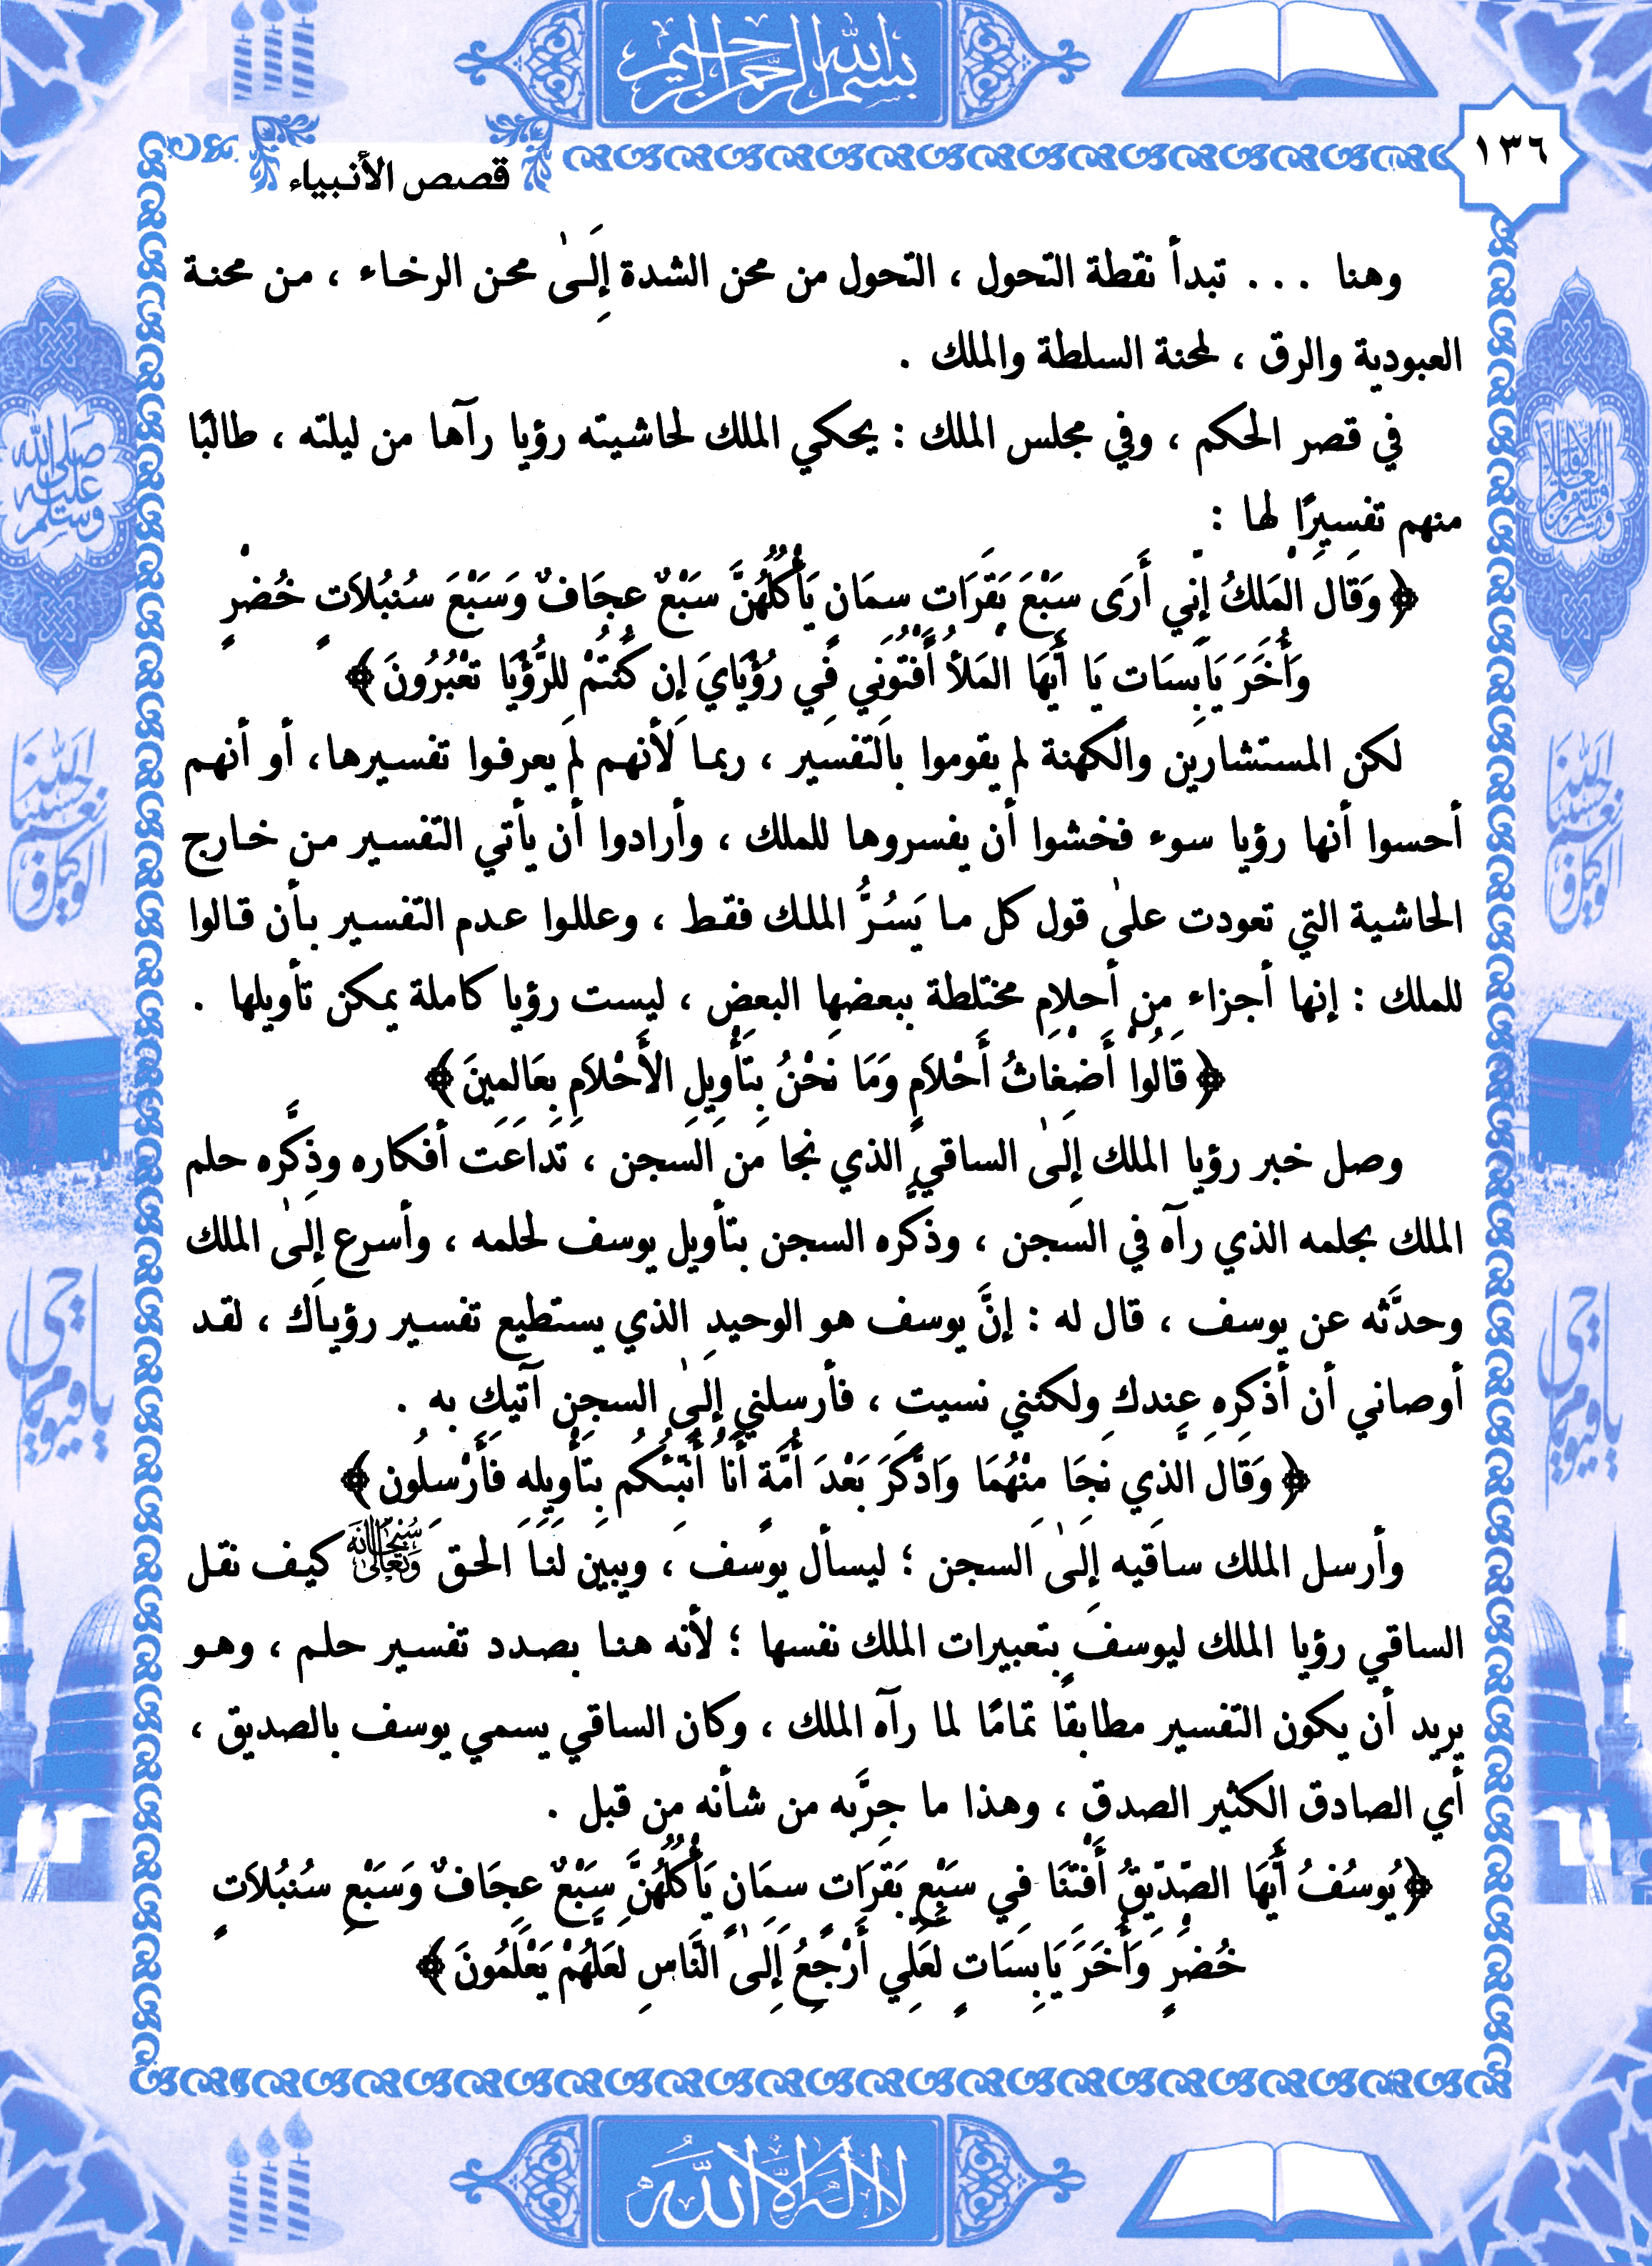 بسم الله الرحمن الرحيم
١٣٦
قصص الأنبياء
وهنا . . . تبدأ نقطة التحول ، التحول من محن الشدة إِلَىٰ محن الرخاء ، من محنة
العبودية والرق ، لمحنة السلطة والملك .
في قصر الحكم ، وفي مجلس الملك : يحكي الملك لحاشيته رؤيا رآها من ليلته ، طالبًا
منهم تفسيرًا لها :
﴿ وَقَالَ الْمَلِكُ إِنِّي أَرَى سَبْعَ بَقَرَاتٍ سِمَانٍ يَأْكُلُهُنَّ سَبْعٌ عِجَافٌ وَسَبْعَ سُنْبُلاَتٍ خُضْرٍ
وَأُخَرَ يَابِسَاتٍ يَا أَيُّهَا الْمَلأُ أَفْتُونِي فِي رُؤْيَايَ إِن كُنتُمْ لِلرُّؤْيَا تَعْبُرُونَ ﴾
لكن المستشارين والكهنة لم يقوموا بالتفسير ، ربما لأنهم لم يعرفوا تفسيرها، أو أنهم
أحسوا أنها رؤيا سوء فخشوا أن يفسروها للملك ، وأرادوا أن يأتي التفسير من خارج
الحاشية التي تعودت علىٰ قول كل ما يَسُرُّ الملك فقط ، وعللوا عدم التفسير بأن قالوا
للملك : إنها أجزاء من أحلام مختلطة ببعضها البعض ، ليست رؤيا كاملة يمكن تأويلها .
﴿ قَالُوا أَضْغَاثُ أَحْلاَمٍ وَمَا نَحْنُ بِتَأْوِيلِ الأَحْلاَمِ بِعَالِمِينَ ﴾
وصل خبر رؤيا الملك إِلَىٰ الساقي الذي نجا من السجن ، تداعت أفكاره وذكَّره حلم
الملك بحلمه الذي رآه في السجن ، وذكَّره السجن بتأويل يوسف لحلمه ، وأسرع إِلَىٰ الملك
وحدَّثه عن يوسف ، قال له : إنَّ يوسف هو الوحيد الذي يستطيع تفسير رؤياك ، لقد
أوصاني أن أذكره عندك ولكنني نسيت ، فأرسلني إلىٰ السجن آتيك به .
﴿ وَقَالَ الَّذِي نَجَا مِنْهُمَا وَادَّكَرَ بَعْدَ أُمَّةٍ أَنَا أُنَبِّئُكُم بِتَأْوِيلِهِ فَأَرْسِلُونِ ﴾
وأرسل الملك ساقيه إِلَىٰ السجن ؛ ليسأل يوسف ، ويبين لنا الحق سُبْحَانَهُ وَتَعَالَىٰ كيف نقل
الساقي رؤيا الملك ليوسف بتعبيرات الملك نفسها ؛ لأنه هنا بصدد تفسير حلم ، وهو
يريد أن يكون التفسير مطابقًا تمامًا لما رآه الملك ، وكان الساقي يسمي يوسف بالصديق ،
أي الصادق الكثير الصدق ، وهذا ما جرَّبه من شأنه من قبل .
﴿ يُوسُفُ أَيُّهَا الصِّدِّيقُ أَفْتِنَا فِي سَبْعِ بَقَرَاتٍ سِمَانٍ يَأْكُلُهُنَّ سَبْعٌ عِجَافٌ وَسَبْعِ سُنْبُلاَتٍ
خُضْرٍ وَأُخَرَ يَابِسَاتٍ لَعَلِّي أَرْجِعُ إِلَىٰ النَّاسِ لَعَلَّهُمْ يَعْلَمُونَ ﴾
صلى الله عليه وسلم
حسبنا الله ونعم الوكيل
يا حي يا قيوم
حسبنا الله ونعم الوكيل
يا حي يا قيوم
لا إله إلا الله